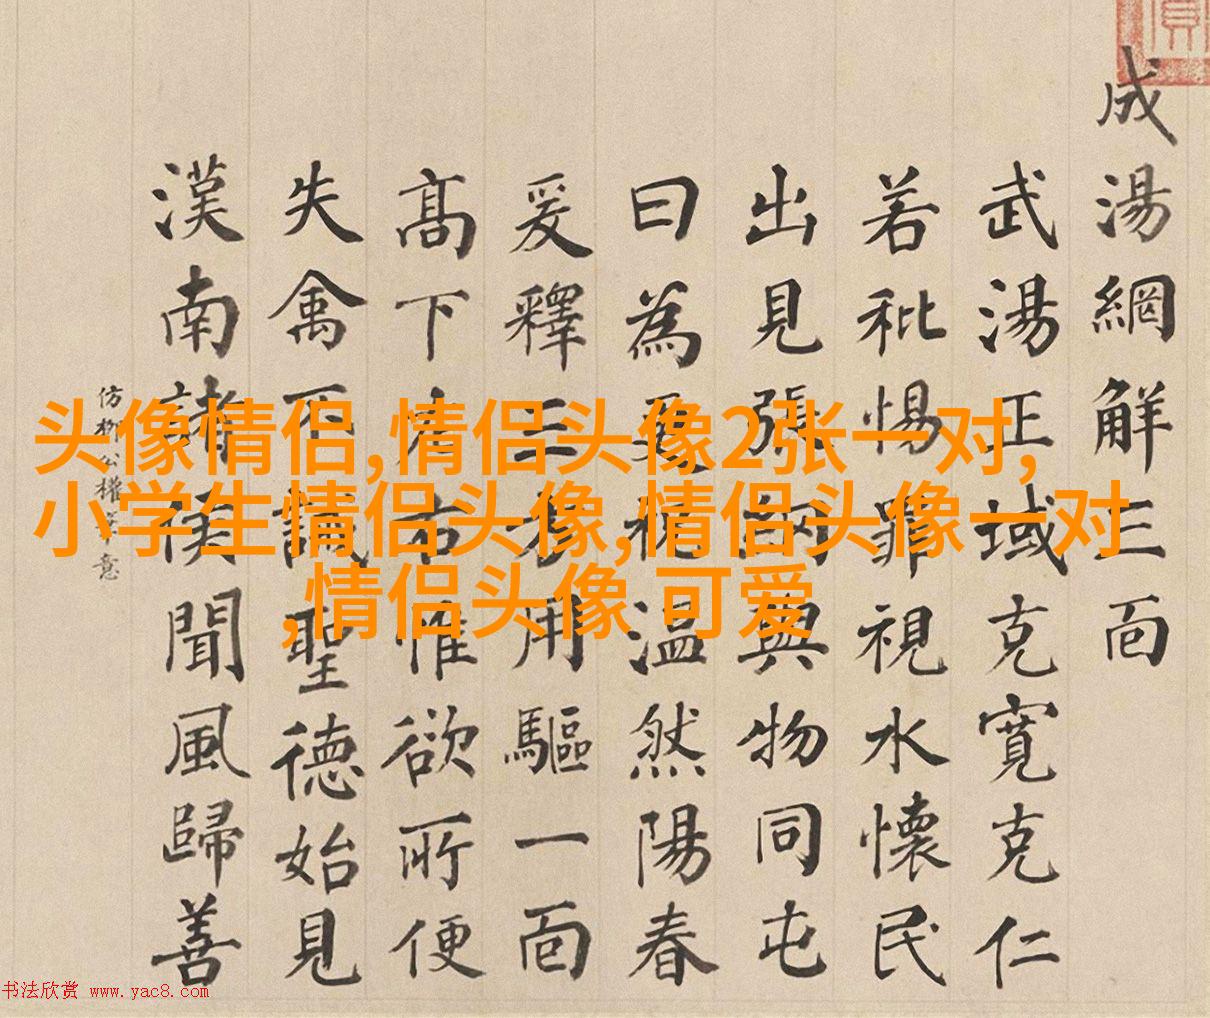 成湯網解三面
武湯正域克寬克仁
若秕惕罪視水懷民
出見張與物同屯
曰為祝温然陽春
爰釋三方用驅一面
髙下左右惟欲所便
失禽不誡聖德始見
漢南諸侯聞風歸善
仿柳公權筆意
头像情侣,情侣头像2张一对,
小学生情侣头像,情侣头像一对
,情侣头像 可爱
书法欣赏 www.yac8.com